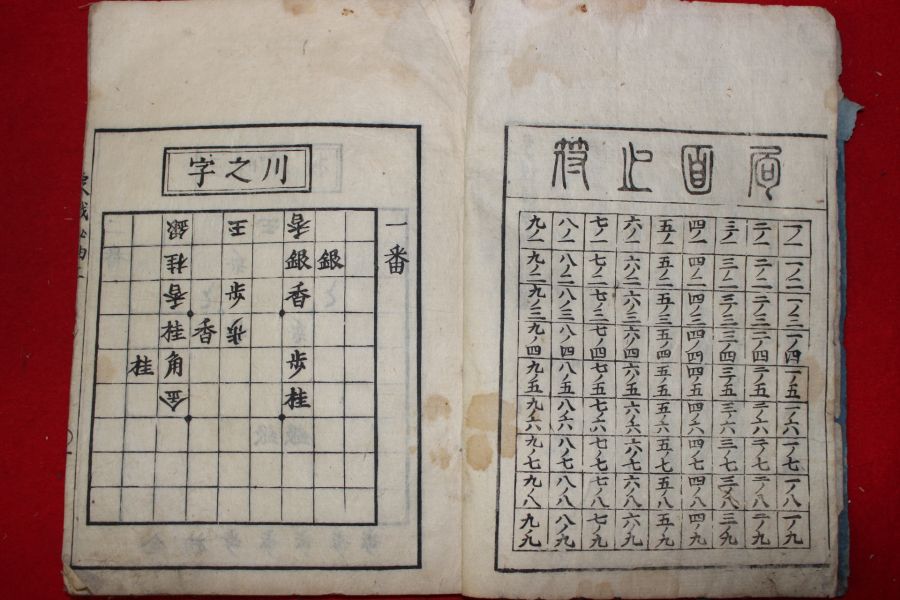 局面之符
一ノ一 一ノ二 一ノ三 一ノ四 一ノ五 一ノ六 一ノ七 一ノ八 一ノ九
二ノ一 二ノ二 二ノ三 二ノ四 二ノ五 二ノ六 二ノ七 二ノ八 二ノ九
三ノ一 三ノ二 三ノ三 三ノ四 三ノ五 三ノ六 三ノ七 三ノ八 三ノ九
四ノ一 四ノ二 四ノ三 四ノ四 四ノ五 四ノ六 四ノ七 四ノ八 四ノ九
五ノ一 五ノ二 五ノ三 五ノ四 五ノ五 五ノ六 五ノ七 五ノ八 五ノ九
六ノ一 六ノ二 六ノ三 六ノ四 六ノ五 六ノ六 六ノ七 六ノ八 六ノ九
七ノ一 七ノ二 七ノ三 七ノ四 七ノ五 七ノ六 七ノ七 七ノ八 七ノ九
八ノ一 八ノ二 八ノ三 八ノ四 八ノ五 八ノ六 八ノ七 八ノ八 八ノ九
九ノ一 九ノ二 九ノ三 九ノ四 九ノ五 九ノ六 九ノ七 九ノ八 九ノ九
川之字
一番
銀
香 銀 香 歩 桂
王 歩 歩
香
銀 桂 香 桂 角 金
桂